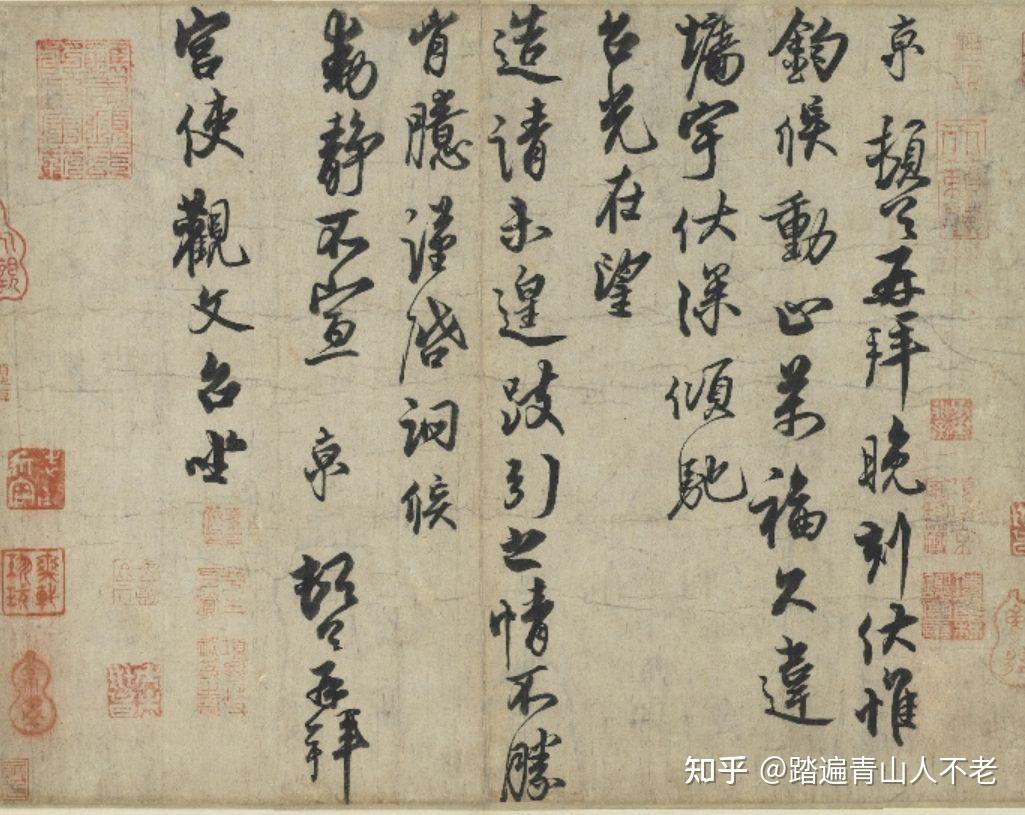 京頓首再拜晚刻伏惟
鈞候動止萬福久違
墉宇伏深傾馳
台光在望
造請未遑跂引之情不勝
胷臆謹啓詗候
動靜不宣 京 頓首再拜
宮使觀文台坐
知乎 @踏遍青山人不老